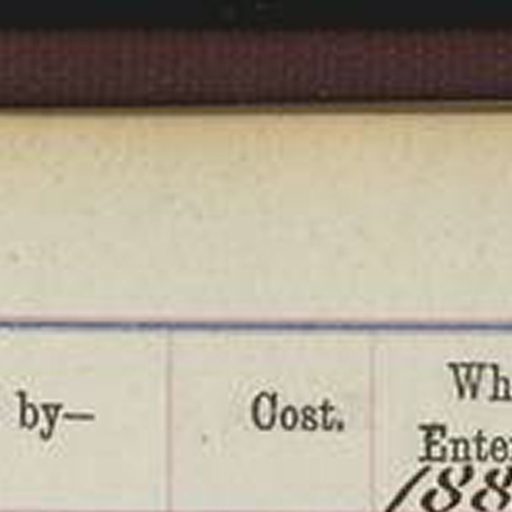 by—
Cost.
Wh
Enter
188